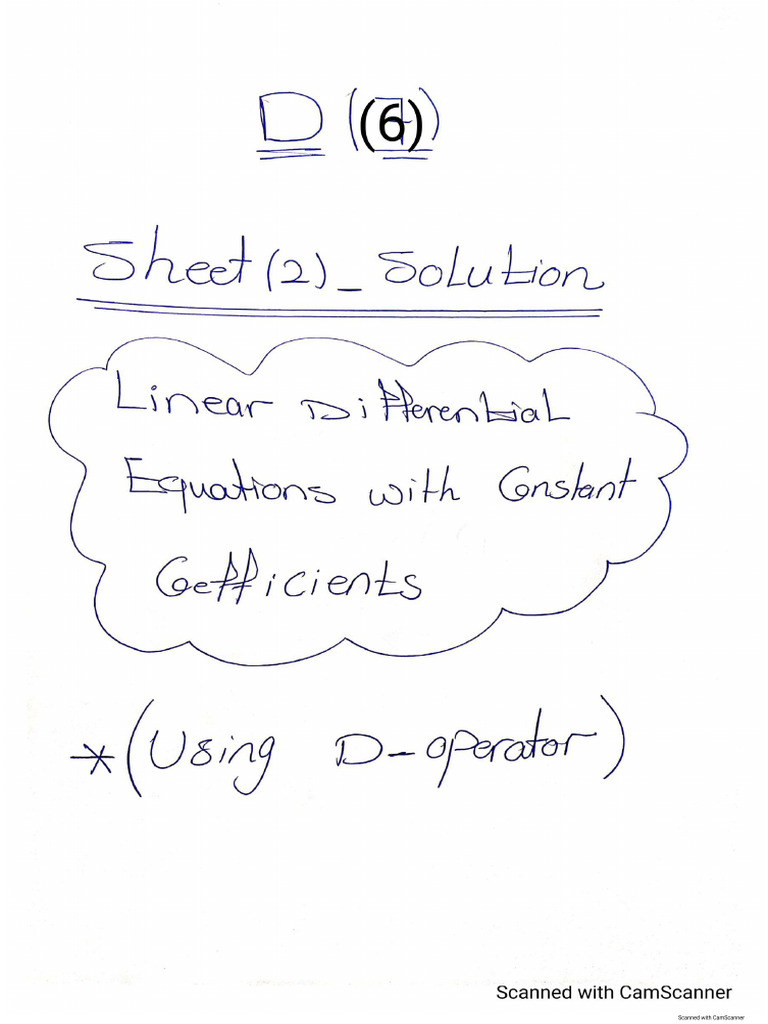 D (6)
Sheet (2) - Solution
Linear Differential
Equations with Constant
Coefficients
* (Using D-operator)
Scanned with CamScanner
Scanned with CamScanner